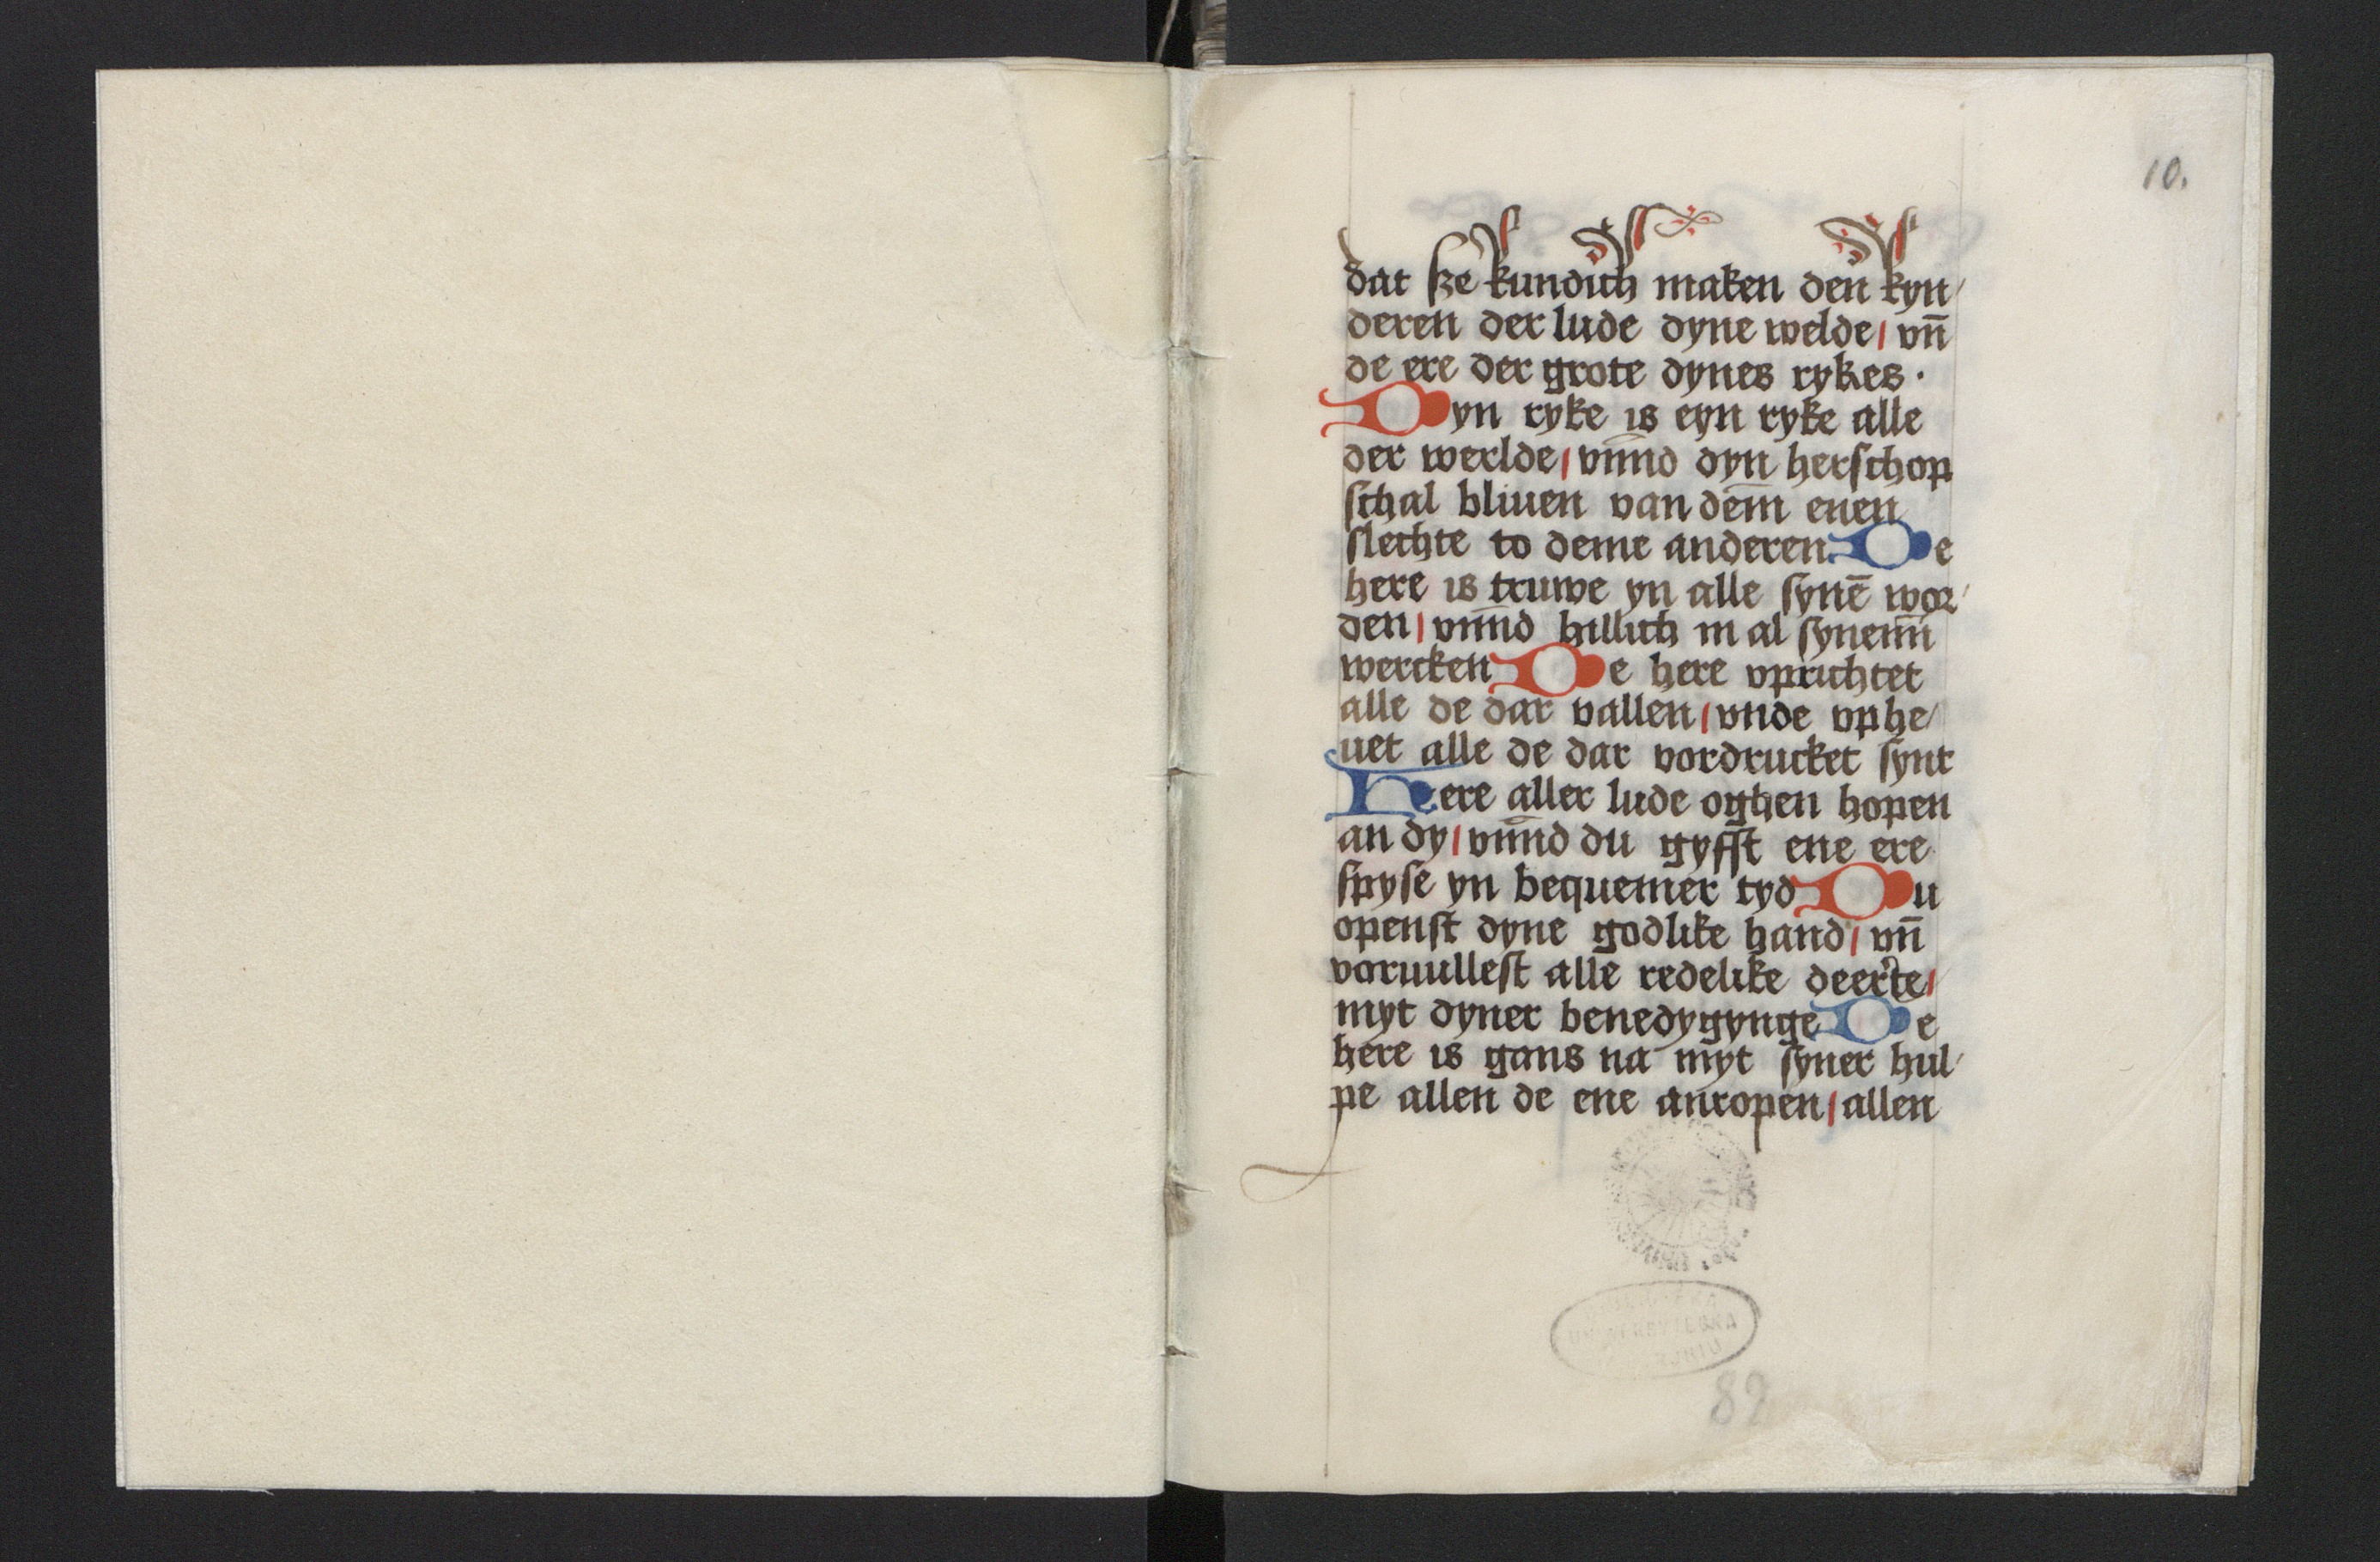 10.
dat sze kundich maken den kyn/
deren der lude dyne welde / vn̄
de ere der grote dynes rykes ·
Dyn ryke is eyn ryke alle
der werlde / vn̄nd dyn herschop
schal bliuen van dem̄ enen
slechte to deme anderen De
here is truwe yn alle synē wor/
den / vn̄nd hillich in al synem̄
wercken De here vprichtet
alle de dar vallen / vnde vphe/
uet alle de dar vordrucket synt
Here aller lude oghen hopen
an dy / vn̄nd du gyfst ene ere
spyse yn bequemer tyd Du
openst dyne godlike hand / vn̄
voruullest alle redelike deerte /
myt dyner benedygynge De
here is gans na myt syner hul/
pe allen de ene anropen / allen
82